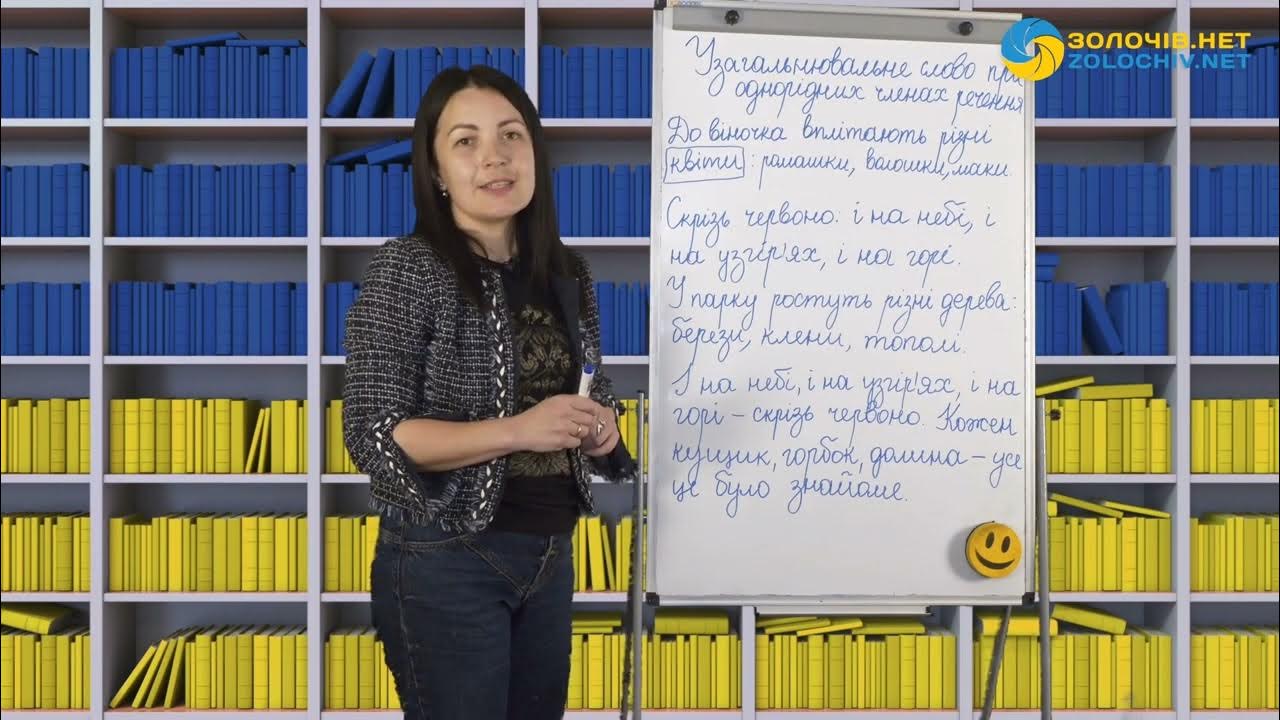 ЗОЛОЧІВ.НЕТ
ZOLOCHIV.NET
Узагальнювальне слово при
однорідних членах речення
До віночка вплітають різні
квіти: ромашки, волошки, маки.
Скрізь червоно: і на небі, і
на узгір'ях, і на горі.
У парку ростуть різні дерева:
берези, клени, тополі.
І на небі, і на узгір'ях, і на
горі – скрізь червоно. Кожен
кущик, горбок, долина – усе
це було знайоме.